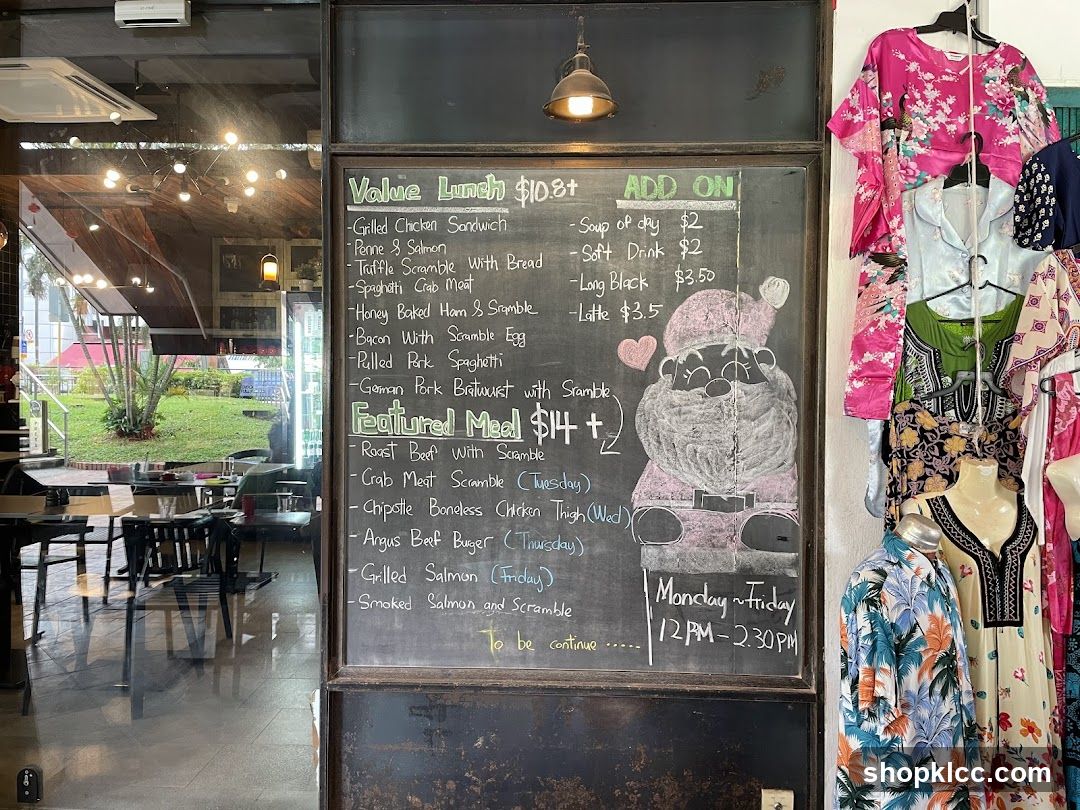 Value Lunch $10.8+
-Grilled Chicken Sandwich
-Penne & Salmon
-Truffle Scramble With Bread
-Spaghetti Crab Meat
-Honey Baked Ham & Sramble
-Bacon With Scramble Egg
-Pulled Pork Spaghetti
-German Pork Bratwurst with Sramble
ADD ON
-Soup of day $2
-Soft Drink $2
-Long Black $3.50
-Latte $3.5
Featured Meal $14+
-Roast Beef With Scramble
-Crab Meat Scramble (Tuesday)
-Chipotle Boneless Chicken Thigh (Wed)
-Angus Beef Burger (Thursday)
-Grilled Salmon (Friday)
-Smoked Salmon and Scramble
To be continue .....
Monday ~ Friday
12PM - 2.30PM
shopklcc.com